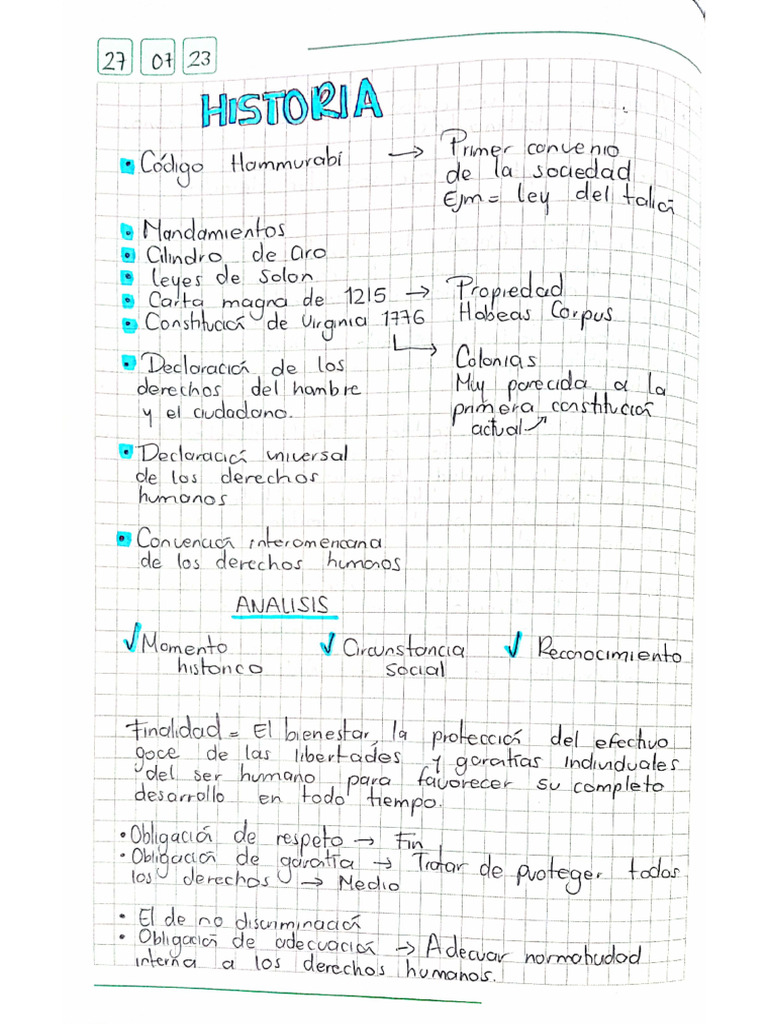 27 07 23
HISTORIA
• Código Hammurabi → Primer convenio
de la sociedad
Ejm = ley del talión
• Mandamientos
• Cilindro de Ciro
• leyes de Solon
• Carta magna de 1215 → Propiedad
Habeas Corpus
• Constitución de Virginia 1776
→ Colonias
Muy parecida a la
primera constitución
actual
• Declaración de los
derechos del hombre
y el ciudadano.
• Declaración universal
de los derechos
humanos
• Convención interamericana
de los derechos humanos
ANALISIS
✓ Momento
historico
✓ Circunstancia
social
✓ Reconocimiento
Finalidad = El bienestar, la protección del efectivo
goce de las libertades y garantías individuales
del ser humano para favorecer su completo
desarrollo en todo tiempo.
• Obligación de respeto → Fin
• Obligación de garantía → Tratar de proteger todos
los derechos → Medio
• El de no discriminación
• Obligación de adecuación → Adecuar normatividad
interna a los derechos humanos.